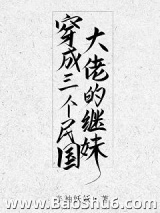 穿成三个民国
大佬的继妹
著
www.BaoShu6.com